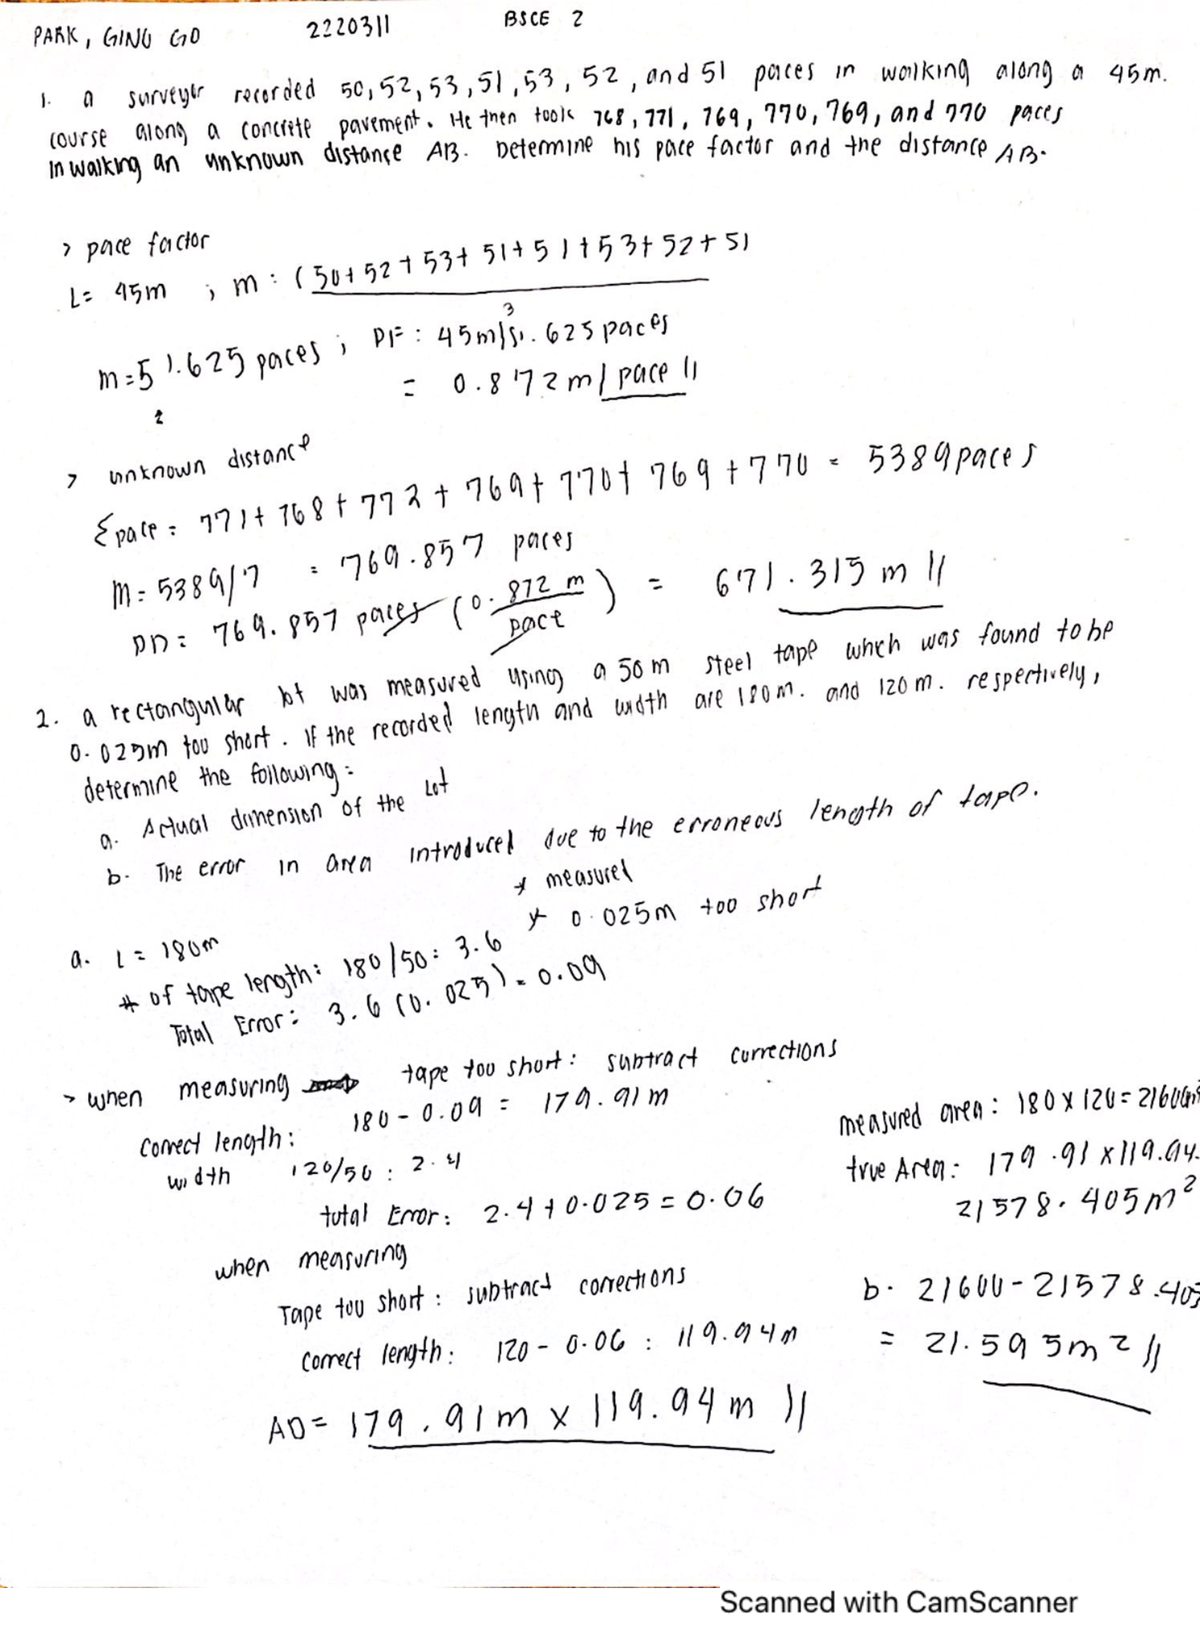 PARK, GING GO 2220311 BSCE 2
1. a surveyer recorded 50, 52, 53, 51, 53, 52, and 51 paces in walking along a 45m.
course along a concrete pavement. He then took 768, 771, 769, 770, 769, and 770 paces
in walking an unknown distance AB. Determine his pace factor and the distance AB.
> pace factor
L= 45m ; m : (50+52+53+51+51+53+52+51
3
m=51.625 paces ; PF : 45m/51.625 paces
= 0.872m/pace //
2
> unknown distance
Σpace = 771+768+772+769+770+769+770 = 5389 paces
M= 5389/7 = 769.857 paces
PD= 769.857 paces (0.872 m/pace) = 671.315 m //
2. a rectangular lot was measured using a 50m steel tape which was found to be
0.025m too short. If the recorded length and width are 180m. and 120m. respectively,
determine the following:
a. Actual dimension of the Lot
b. The error in area introduced due to the erroneous length of tape.
* measured
a. L= 180m * 0.025m too short
# of tape length: 180/50: 3.6
Total Error: 3.6 (0.025) = 0.09
> when measuring tape too short: subtract corrections
correct length: 180-0.09 = 179.91m
width 120/50: 2.4
total Error: 2.4+0.025=0.06
when measuring
Tape too short: subtract corrections
correct length: 120-0.06: 119.94m
AD= 179.91m x 119.94m //
measured area: 180 x 120=21600m²
true Area: 179.91 x 119.94.
21578.405m²
b. 21600-21578.405
= 21.595m² //
Scanned with CamScanner